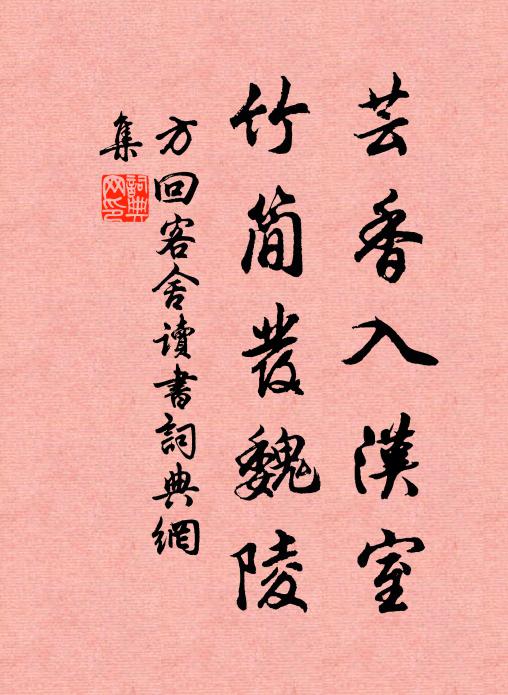 芸香入漢室
竹簡發魏陵
方回客舍讀書詞典網
集
詞典網印